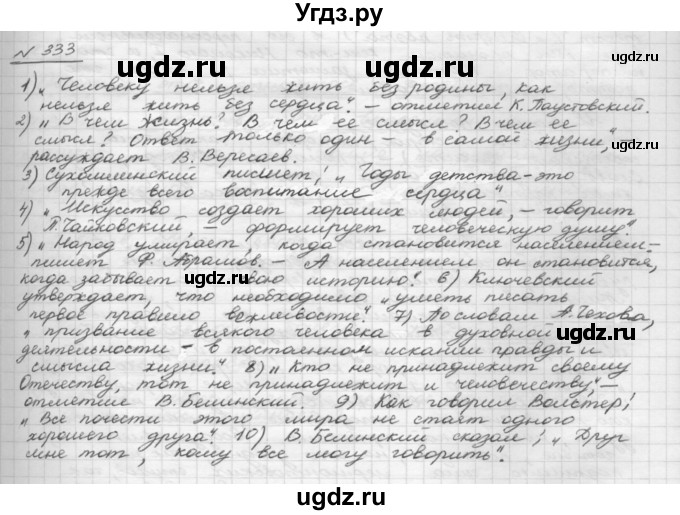 Угдз.ру
N 333
ugdz.ru ugdz.ru
1) „Человеку нельзя жить без родины, как
нельзя жить без сердца“. – отметил К. Паустовский.
2) „В чем жизнь? В чем ее смысл? В чем ее
смысл? Ответ только один – в самой жизни,“ –
рассуждает В. Вересаев.
ugdz.ru ugdz.ru
3) Сухомлинский пишет: „Годы детства – это
прежде всего воспитание сердца“
4) „Искусство создает хороших людей, – говорит
П. Чайковский, – формирует человеческую душу“.
5) „Народ умирает, когда становится населением –
пишет Ф. Абрамов. – А населением он становится,
ugdz.ru ugdz.ru
когда забывает свою историю“. 6) Ключевский
утверждает, что необходимо „уметь писать
первое правило вежливости“. 7) По словам А. Чехова,
„призвание всякого человека в духовной
деятельности – в постоянном искании правды и
смысла жизни.“ 8) „Кто не принадлежит своему
Отечеству, тот не принадлежит и человечеству,“ –
отметил В. Белинский. 9) Как говорил Вольтер:
„Все почести этого мира не стоят одного
хорошего друга“. 10) В. Белинский сказал: „Друг
мне тот, кому все могу говорить“.
ugdz.ru ugdz.ru
ugdz.ru